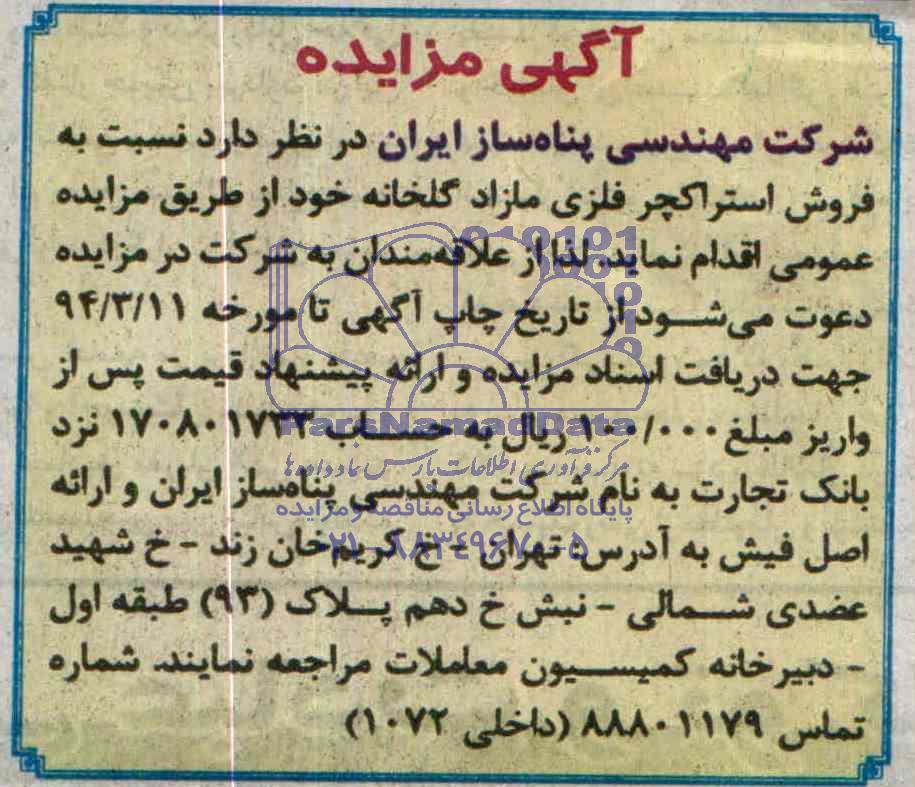 آگهی مزایده
شرکت مهندسی پناه‌ساز ایران در نظر دارد نسبت به
فروش استراکچر فلزی مازاد گلخانه خود از طریق مزایده
عمومی اقدام نماید. لذا از علاقه‌مندان به شرکت در مزایده
دعوت می‌شود از تاریخ چاپ آگهی تا مورخه ۹۴/۳/۱۱
جهت دریافت اسناد مزایده و ارائه پیشنهاد قیمت پس از
واریز مبلغ ۱۰۰/۰۰۰ ریال به حساب ۱۷۰۸۰۱۷۳۳ نزد
بانک تجارت به نام شرکت مهندسی پناه‌ساز ایران و ارائه
اصل فیش به آدرس: تهران - خ کریم‌خان زند - خ شهید
عضدی شمالی - نبش خ دهم پلاک (۹۳) طبقه اول
- دبیرخانه کمیسیون معاملات مراجعه نمایند. شماره
تماس ۸۸۸۰۱۱۷۹ (داخلی ۱۰۷۲)
ParsNamadData
مرکز فرآوری اطلاعات پارس نماد داده‌ها
پایگاه اطلاع رسانی مناقصه و مزایده
۰۲۱-۸۸۳۴۹۶۷۰-۵